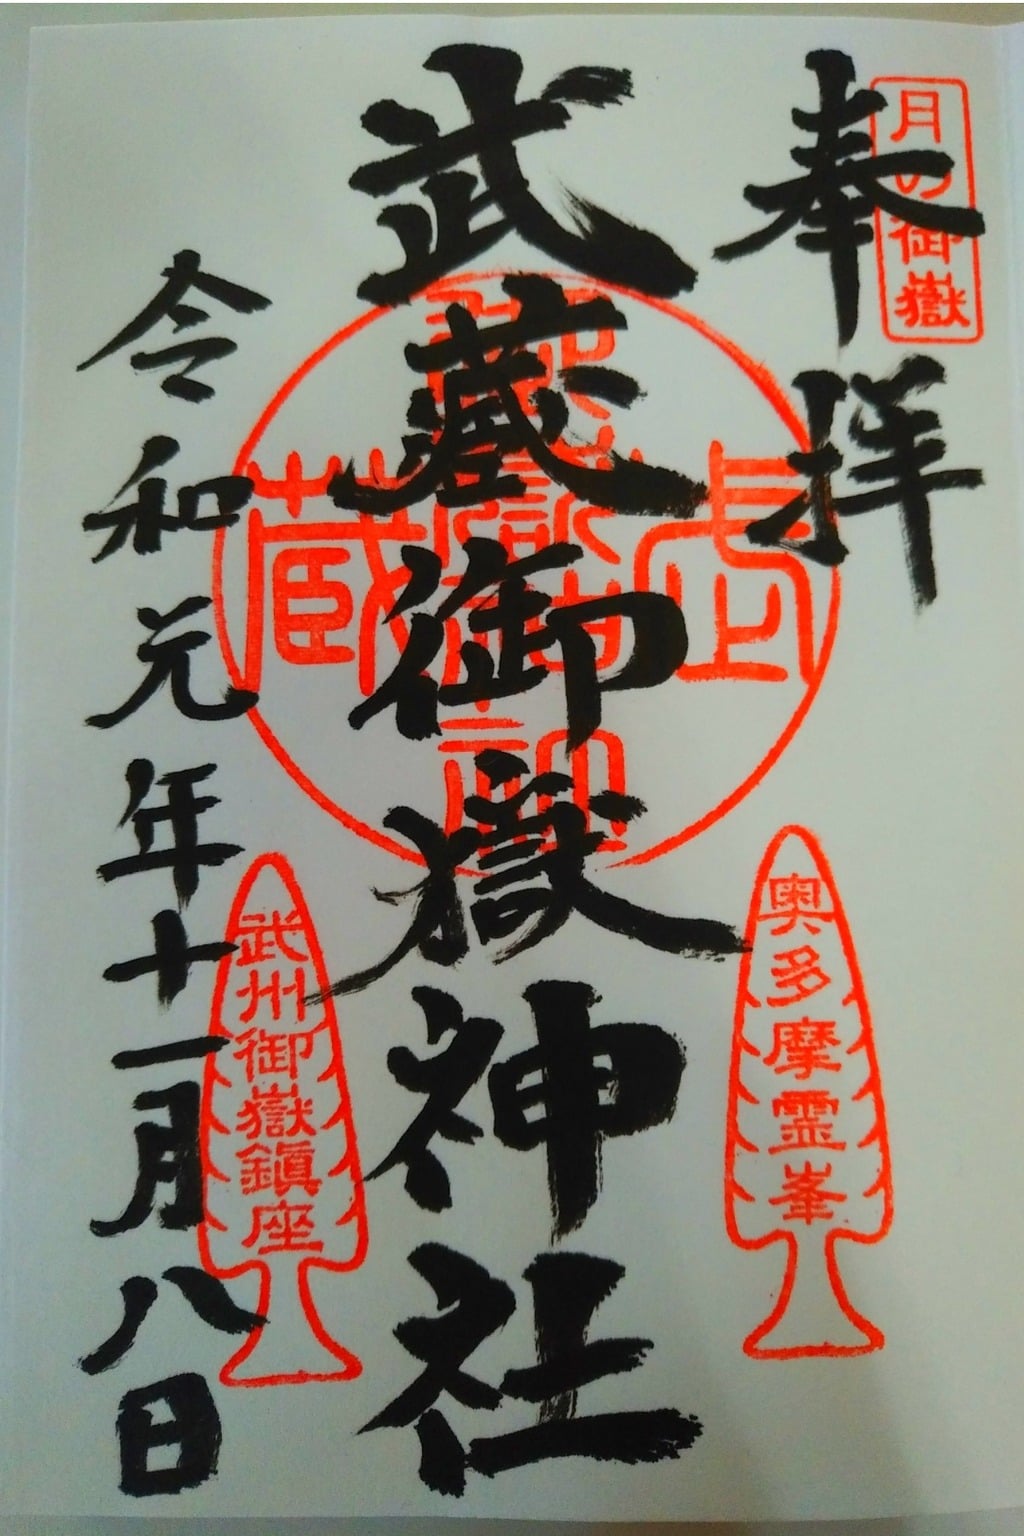 月の御嶽
奉拝
奥多摩霊峯
武蔵御嶽神社
武蔵
武州御嶽鎮座
令和元年十一月八日